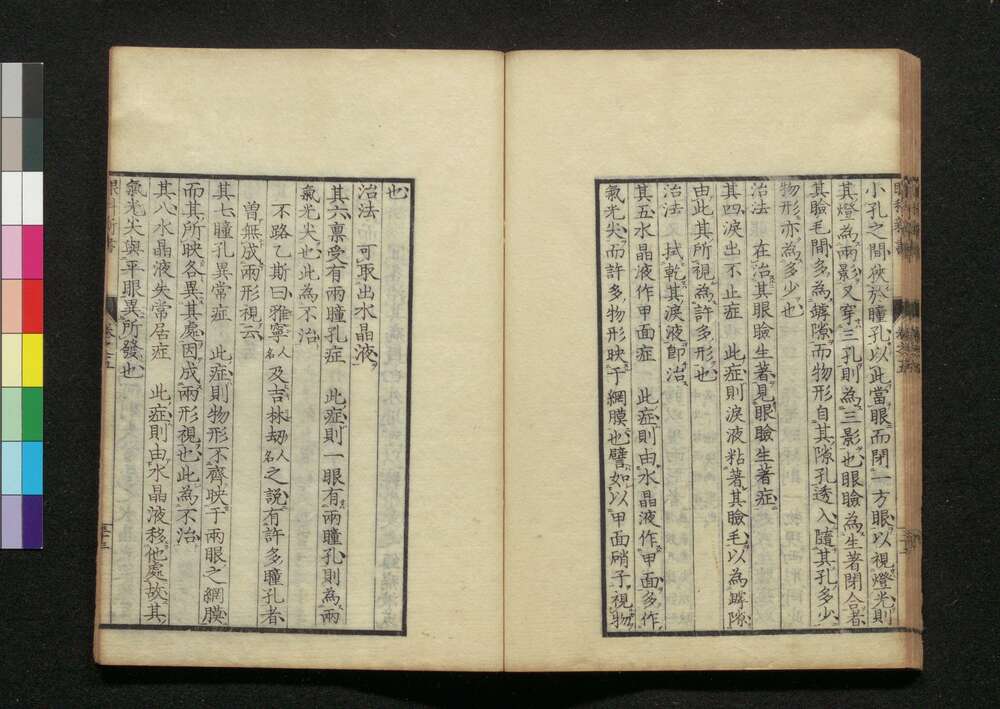 小孔之間狹於瞳孔以此當眼而閉一方眼以視燈光則
其燈為兩影又穿三孔則為三影也眼瞼為生著閉合者
其瞼毛間多為罅隙而物形自其隙孔透入隨其孔多少
物形亦為多少也
治法 在治其眼瞼生著見眼瞼生著症
其四淚出不止症 此症則淚液粘著其瞼毛以為罅隙
由此其所視為許多形也
治法 拭乾其淚液即治
其五水晶液作甲面症 此症則由水晶液作甲面多作
氣光尖而許多物形映于網膜也譬如以甲面硝子視物
也
治法 可取出水晶液
其六稟受有兩瞳孔症 此症則一眼有兩瞳孔則為兩
氣光尖也此為不治
不路乙斯曰雅寧人名及吉林劫人名之說有許多瞳孔者
曾無成兩形視云
其七瞳孔異常症 此症則物形不齊映于兩眼之網膜
而其所映各異其處因成兩形視也此為不治
其八水晶液失常居症 此症則由水晶液移他處故其
氣光尖與平眼異所發也